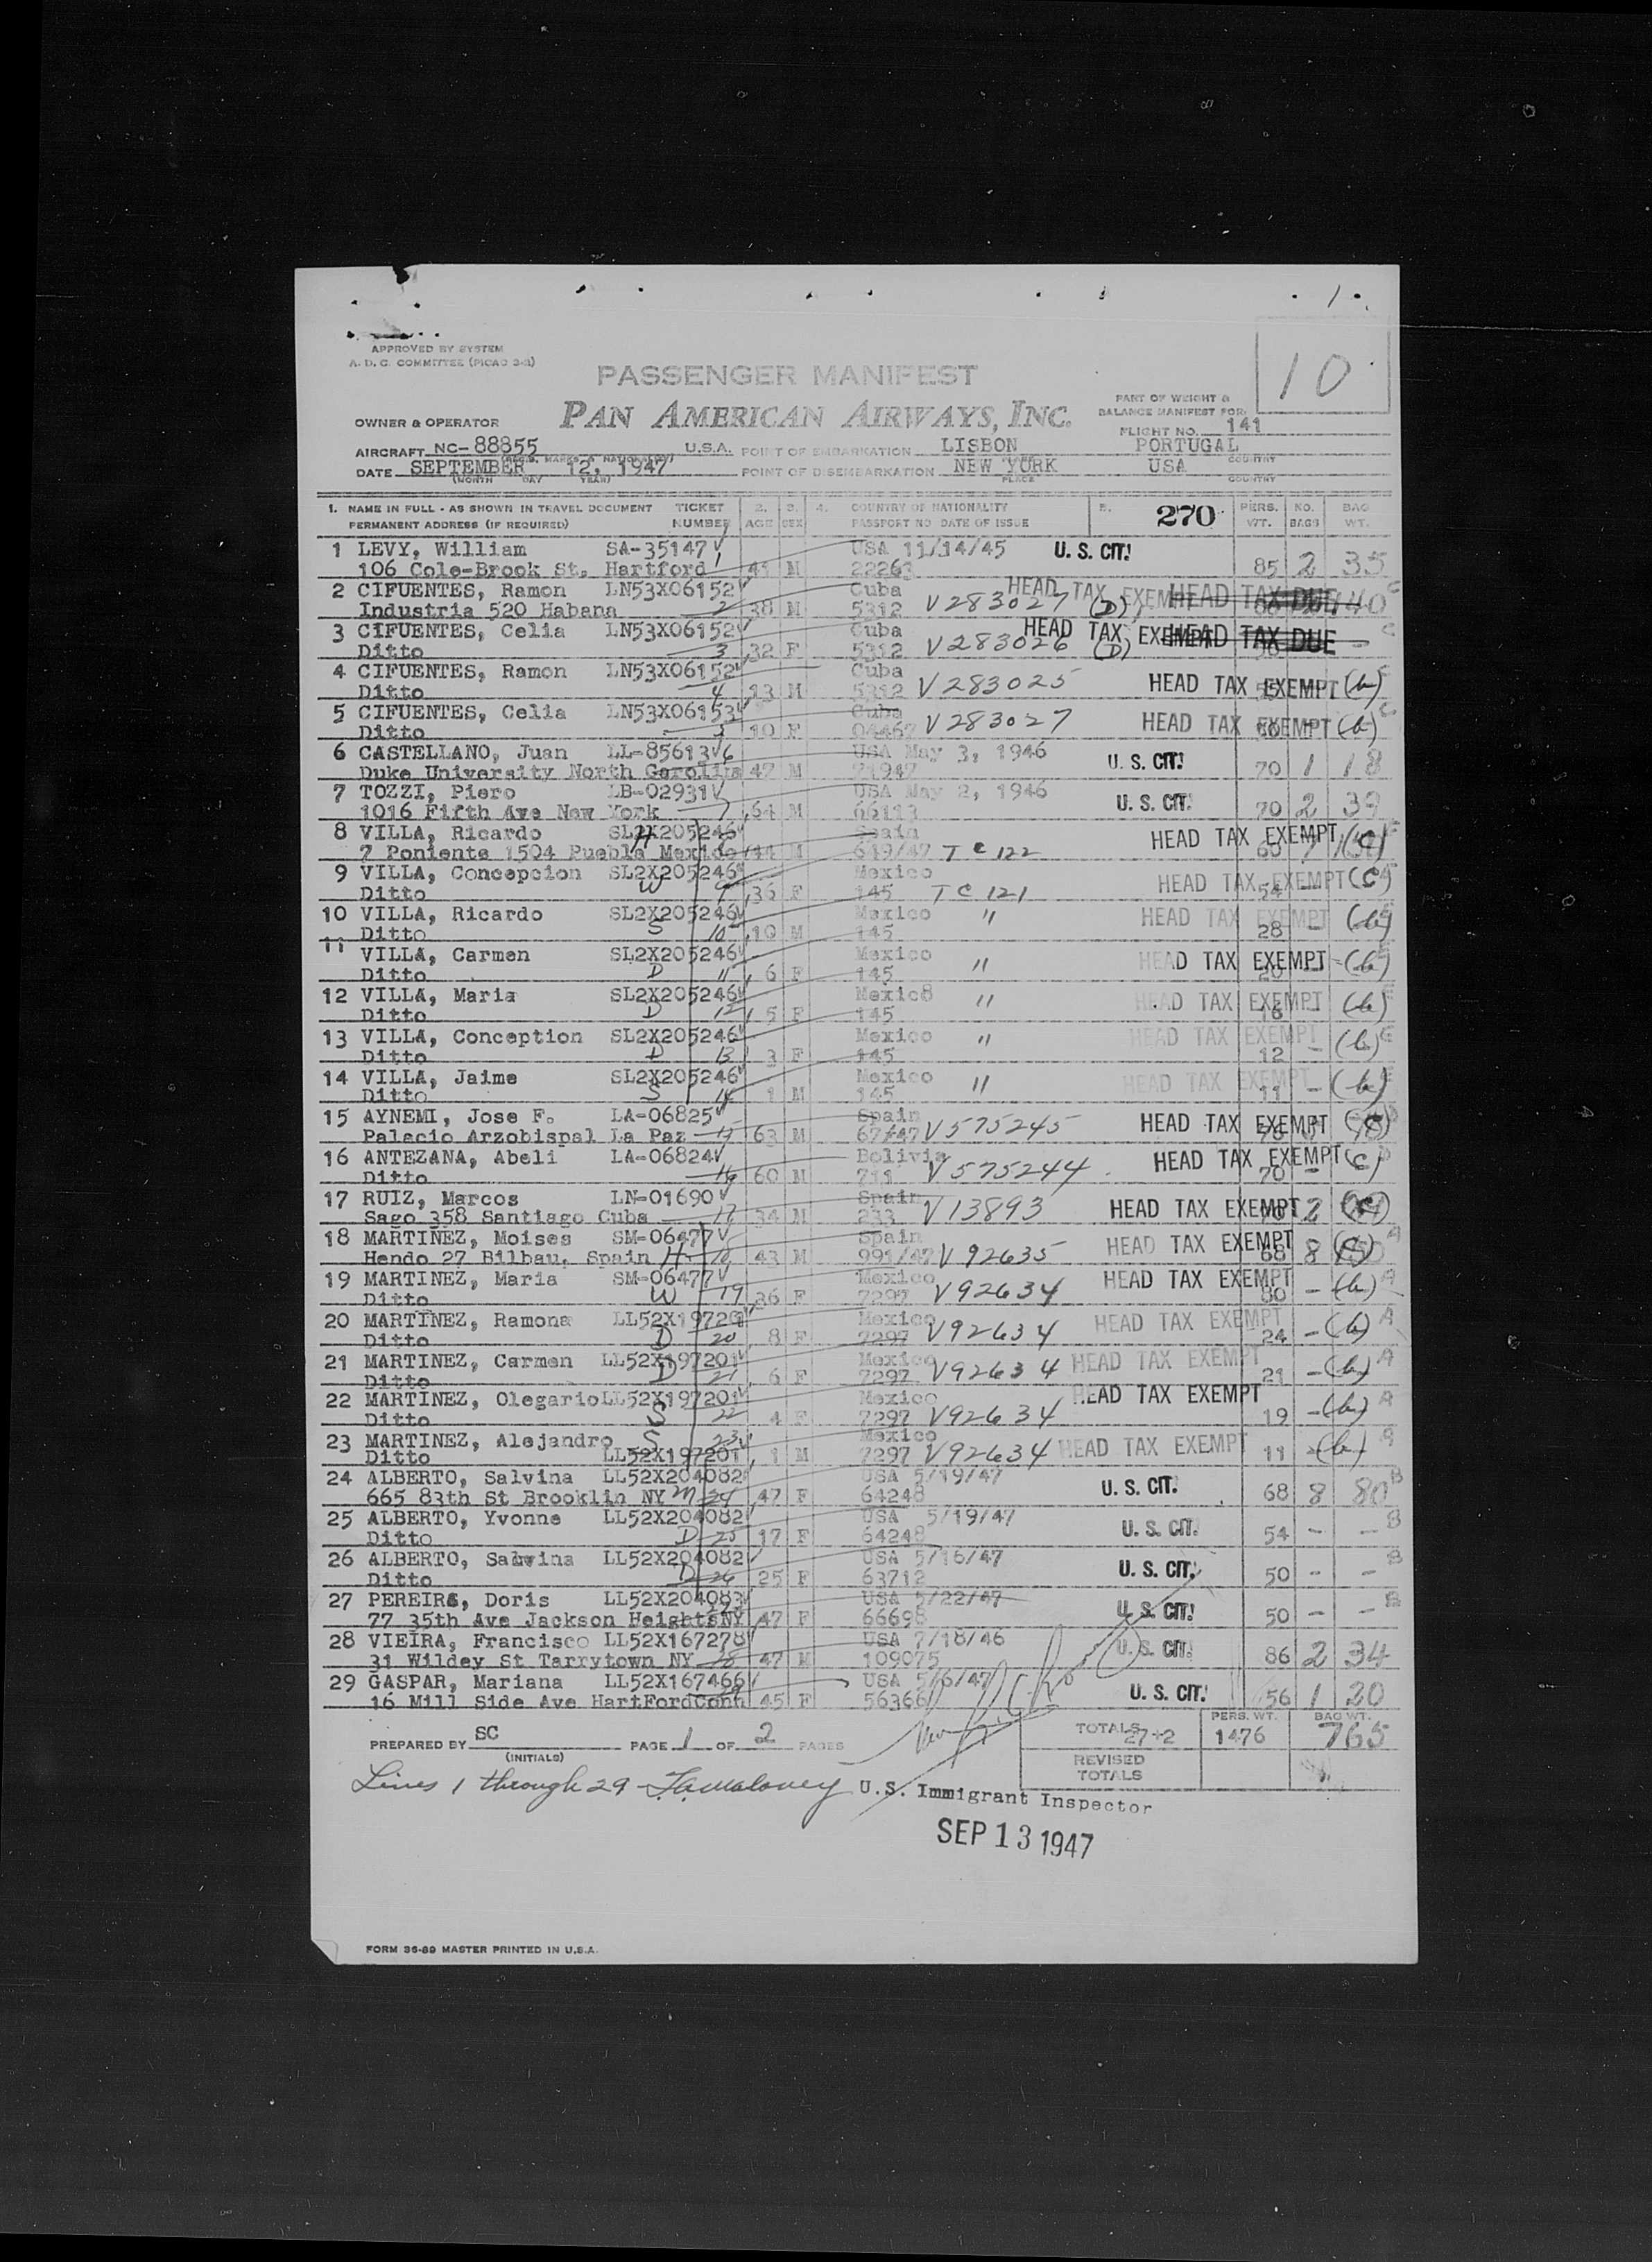 10
APPROVED BY SYSTEM
A. D. C. COMMITTEE (PICAO 3-3)
PASSENGER MANIFEST
PAN AMERICAN AIRWAYS, INC.
PART OF WEIGHT &
BALANCE MANIFEST FOR:
OWNER & OPERATOR
FLIGHT NO. 141
AIRCRAFT NC-88855 U.S.A. POINT OF EMBARKATION LISBON PORTUGAL
DATE SEPTEMBER 12, 1947 POINT OF DISEMBARKATION NEW YORK USA
(MONTH DAY YEAR) PLACE COUNTRY
1. NAME IN FULL - AS SHOWN IN TRAVEL DOCUMENT TICKET 2. 3. 4. COUNTRY OF NATIONALITY 5. 270 PERS. NO. BAG
PERMANENT ADDRESS (IF REQUIRED) NUMBER AGE SEX PASSPORT NO DATE OF ISSUE WT. BAGS WT.
1 LEVY, William SA-35147 USA 11/14/45 U. S. CIT.
106 Cole-Brook St. Hartford 1 41 M 22263 85 2 35
2 CIFUENTES, Ramon LN53X06152 Cuba HEAD TAX EXEMPT HEAD TAX DUE
Industria 520 Habana 2 38 M 5312 V283027 (D) 140 C
3 CIFUENTES, Celia LN53X06152 Cuba HEAD TAX EXEMPT HEAD TAX DUE C
Ditto 3 32 F 5312 V283026 (D) -
4 CIFUENTES, Ramon LN53X06152 Cuba
Ditto 4 13 M 5312 V283025 HEAD TAX EXEMPT (b)
5 CIFUENTES, Celia LN53X06153 Cuba V283027 HEAD TAX EXEMPT (b) C
Ditto 5 10 F 04467
6 CASTELLANO, Juan LL-85613 6 USA May 3, 1946 U. S. CIT.
Duke University North Carolina 47 M 71947 70 1 18
7 TOZZI, Piero LB-02931 USA May 2, 1946 U. S. CIT.
1016 Fifth Ave New York 7 64 M 66113 70 2 39
8 VILLA, Ricardo SL2X205246 H Spain HEAD TAX EXEMPT (C)
7 Poniente 1504 Puebla Mexico 44 M 649/47 TC 122 60
9 VILLA, Concepcion SL2X205246 W Mexico HEAD TAX EXEMPT (C)
Ditto 9 36 F 145 TC 121 54 -
10 VILLA, Ricardo SL2X205246 S Mexico " HEAD TAX EXEMPT (b)
Ditto 10 10 M 145 28 -
11 VILLA, Carmen SL2X205246 Mexico " HEAD TAX EXEMPT (b)
Ditto D 11 6 F 145 20
12 VILLA, Maria SL2X205246 Mexic8 " HEAD TAX EXEMPT (b)
Ditto D 12 5 F 145 16
13 VILLA, Conception SL2X205246 Mexico " HEAD TAX EXEMPT (b)
Ditto D 13 3 F 145 12 -
14 VILLA, Jaime SL2X205246 Mexico " HEAD TAX EXEMPT (b)
Ditto S 14 1 M 145 11 -
15 AYNEMI, Jose F. LA-06825 Spain HEAD TAX EXEMPT (C)
Palacio Arzobispal La Paz 15 63 M 67/47 V575245
16 ANTEZANA, Abeli LA-06824 Bolivia HEAD TAX EXEMPT (C)
Ditto 16 60 M 711 V575244 70 -
17 RUIZ, Marcos LN-01690 Spain HEAD TAX EXEMPT 2 (C)
Sago 358 Santiago Cuba 17 34 M 233 V13893
18 MARTINEZ, Moises SM-06477 Spain HEAD TAX EXEMPT A
Hendo 27 Bilbau, Spain H 18 43 M 991/47 V92635 68 8
19 MARTINEZ, Maria SM-06477 Mexico HEAD TAX EXEMPT (b) A
Ditto W 19 36 F 7297 V92634 80 -
20 MARTINEZ, Ramona LL52X197201 Mexico HEAD TAX EXEMPT (b) A
Ditto D 20 8 F 7297 V92634 24 -
21 MARTINEZ, Carmen LL52X197201 Mexico HEAD TAX EXEMPT (b) A
Ditto D 21 6 F 7297 V92634 21 -
22 MARTINEZ, Olegario LL52X197201 Mexico HEAD TAX EXEMPT (b) A
Ditto S 22 4 F 7297 V92634 19 -
23 MARTINEZ, Alejandro S 23 Mexico HEAD TAX EXEMPT (b) A
Ditto LL52X197201 1 M 7297 V92634 11 -
24 ALBERTO, Salvina LL52X204082 USA 5/19/47 U. S. CIT. B
665 83th St Brooklin NY M 24 47 F 64248 68 8 80
25 ALBERTO, Yvonne LL52X204082 USA 5/19/47 U. S. CIT. B
Ditto D 25 17 F 64248 54 - -
26 ALBERTO, Salvina LL52X204082 USA 5/16/47 U. S. CIT. B
Ditto D 26 25 F 63712 50 - -
27 PEREIRA, Doris LL52X204083 USA 5/22/47 U. S. CIT. B
77 35th Ave Jackson Heights NY 47 F 66698 50 - -
28 VIEIRA, Francisco LL52X167278 USA 7/18/46 U. S. CIT.
31 Wildey St Tarrytown NY 28 47 M 109075 86 2 34
29 GASPAR, Mariana LL52X167466 USA 5/6/47 U. S. CIT.
16 Mill Side Ave HartFordConn 45 F 56366 56 1 20
PREPARED BY SC PAGE 1 OF 2 PAGES TOTALS 27+2 PERS. WT. 1476 BAG WT. 765
(INITIALS) REVISED
TOTALS
Lines 1 through 29 - U.S. Immigrant Inspector
SEP 13 1947
FORM 36-89 MASTER PRINTED IN U.S.A.